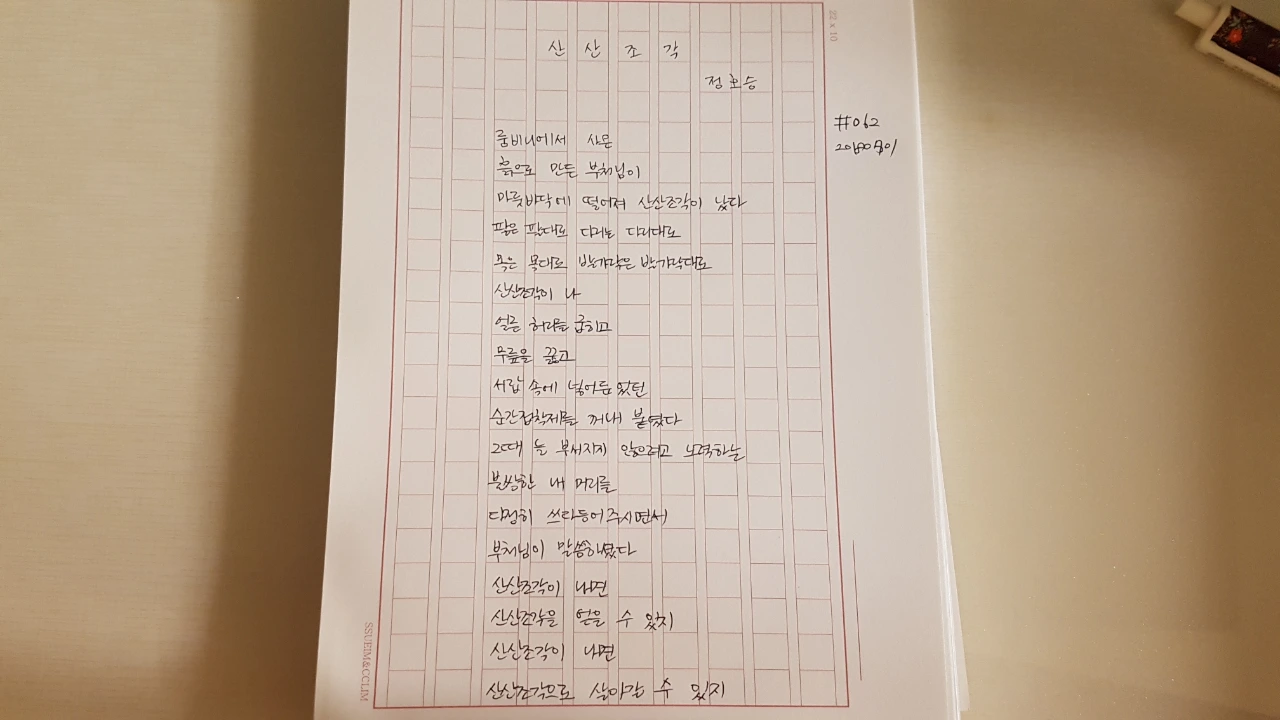 22 x 10
산산조각
정호승
#062
룸비니에서 사온
흙으로 만든 부처님이
마룻바닥에 떨어져 산산조각이 났다
팔은 팔대로 다리는 다리대로
목은 목대로 발가락은 발가락대로
산산조각이 나
얼른 허리를 굽히고
무릎을 꿇고
서랍 속에 넣어두었던
순간접착제를 꺼내 붙였다
그때 늘 부서지지 않으려고 노력하는
불쌍한 내 머리를
다정히 쓰다듬어주시면서
부처님이 말씀하셨다
산산조각이 나면
산산조각을 얻을 수 있지
산산조각이 나면
산산조각으로 살아갈 수 있지